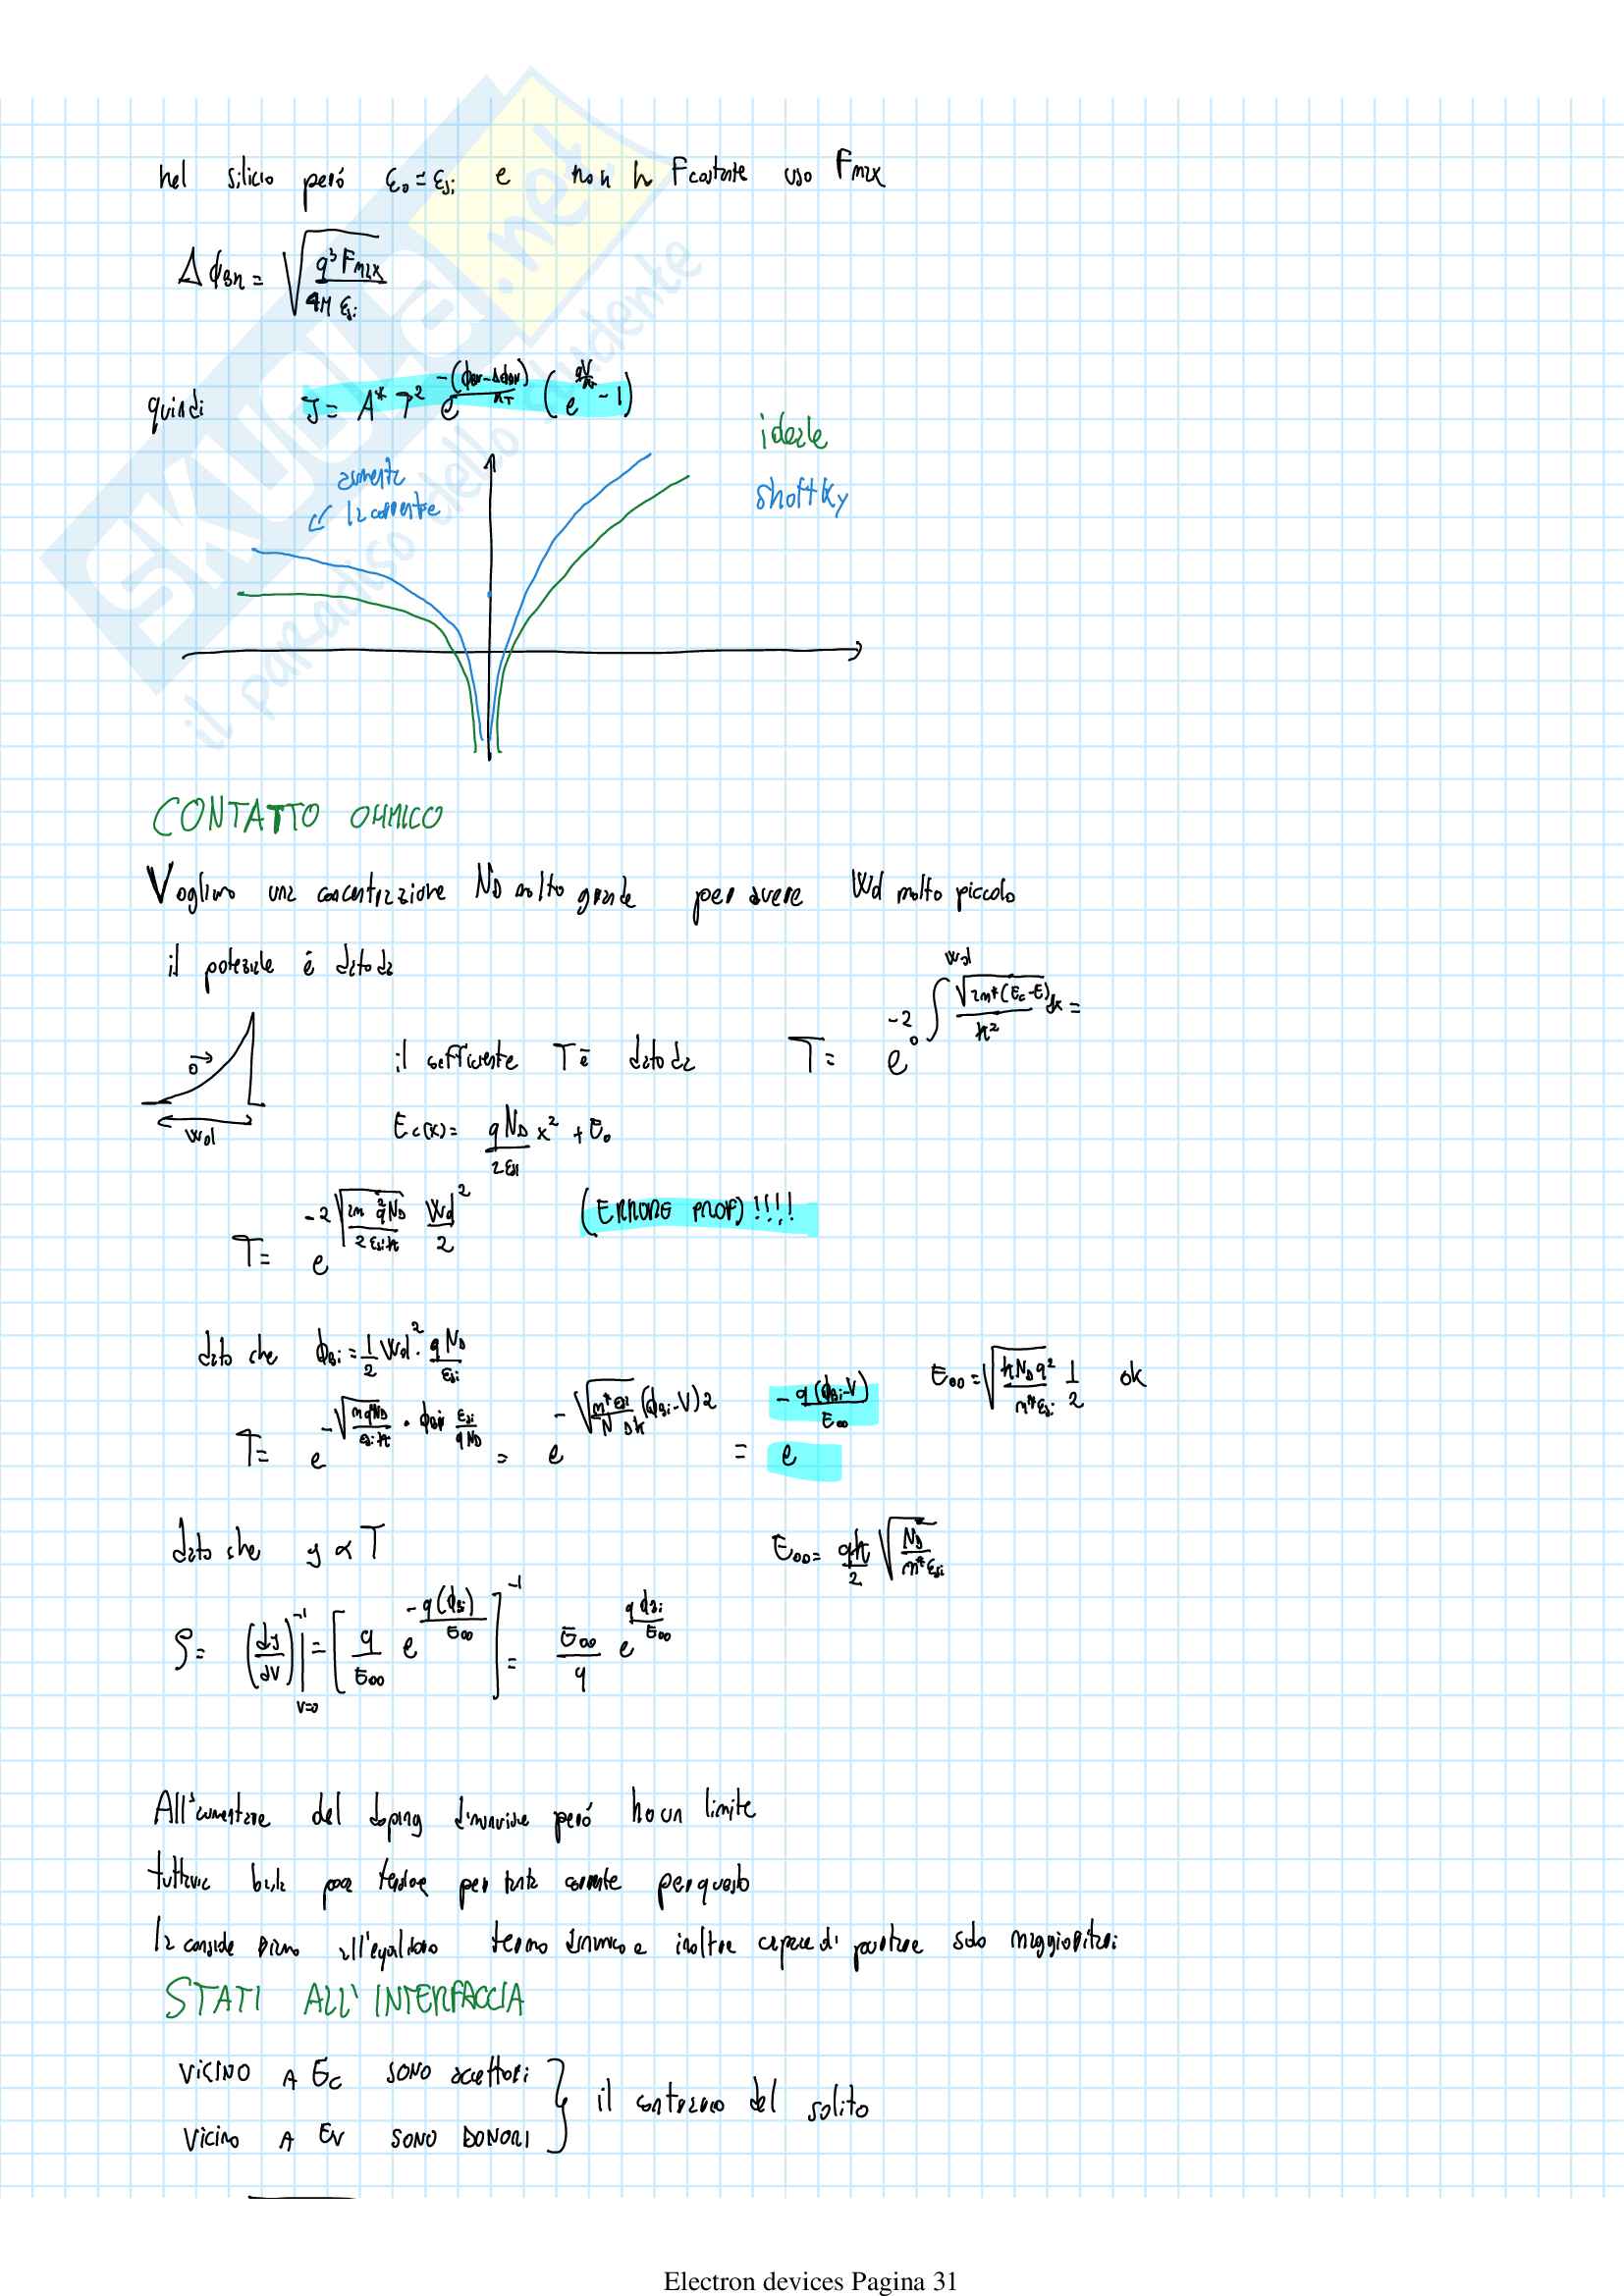 nel silicio peró ε₀ = εsi e non h Fcostante uso Fmax
ΔϕBn = √(q³ Fmax / 4π εsi)
quindi J = A* T² e^(-(ϕBN-ΔϕBN)/kT) (e^(qV/kT) - 1)
ideale
aumenta
la corrente
shottky
CONTATTO OHMICO
Vogliamo una concentrazione ND molto grande per avere Wd molto piccolo
il potenziale é dato da
il coefficiente T é dato da T = e^(-2 ∫₀^Wd √(2m*(Ec-E))/ħ² dx) =
Wd
Ec(x) = qND/2εsi x² + E₀
T = e^(-2 √(2m q²ND / 2εsiħ) Wd²/2) (ERRORE PROF)!!!!
dato che ϕBi = 1/2 Wd² · qND/εsi
E₀₀ = √(ħNDq²/m*εsi) 1/2 ok
T = e^(-√(mq²ND/εsiħ) · ϕBi εsi/qND) = e^(-√(m*εsi/NDħ) (ϕBi-V)2) = e^(-q(ϕBi-V)/E₀₀)
dato che y ∝ T
E₀₀ = qħ/2 √(ND/m*εsi)
ρ = (dy/dV)⁻¹|V=0 = [q/E₀₀ e^(-q(ϕBi)/E₀₀)]⁻¹ = E₀₀/q e^(qϕBi/E₀₀)
All'aumentare del doping diminuisce peró ho un limite
tuttavia basta poca tensione per tanta corrente per questo
la consideriamo all'equilibrio termo dinamico e inoltre capace di portare solo maggioritari
STATI ALL'INTERFACCIA
VICINO A EC SONO accettori
Vicino A EV SONO DONORI
il contrario del solito
SKUOLA.net
il paradiso dello studente
Electron devices Pagina 31